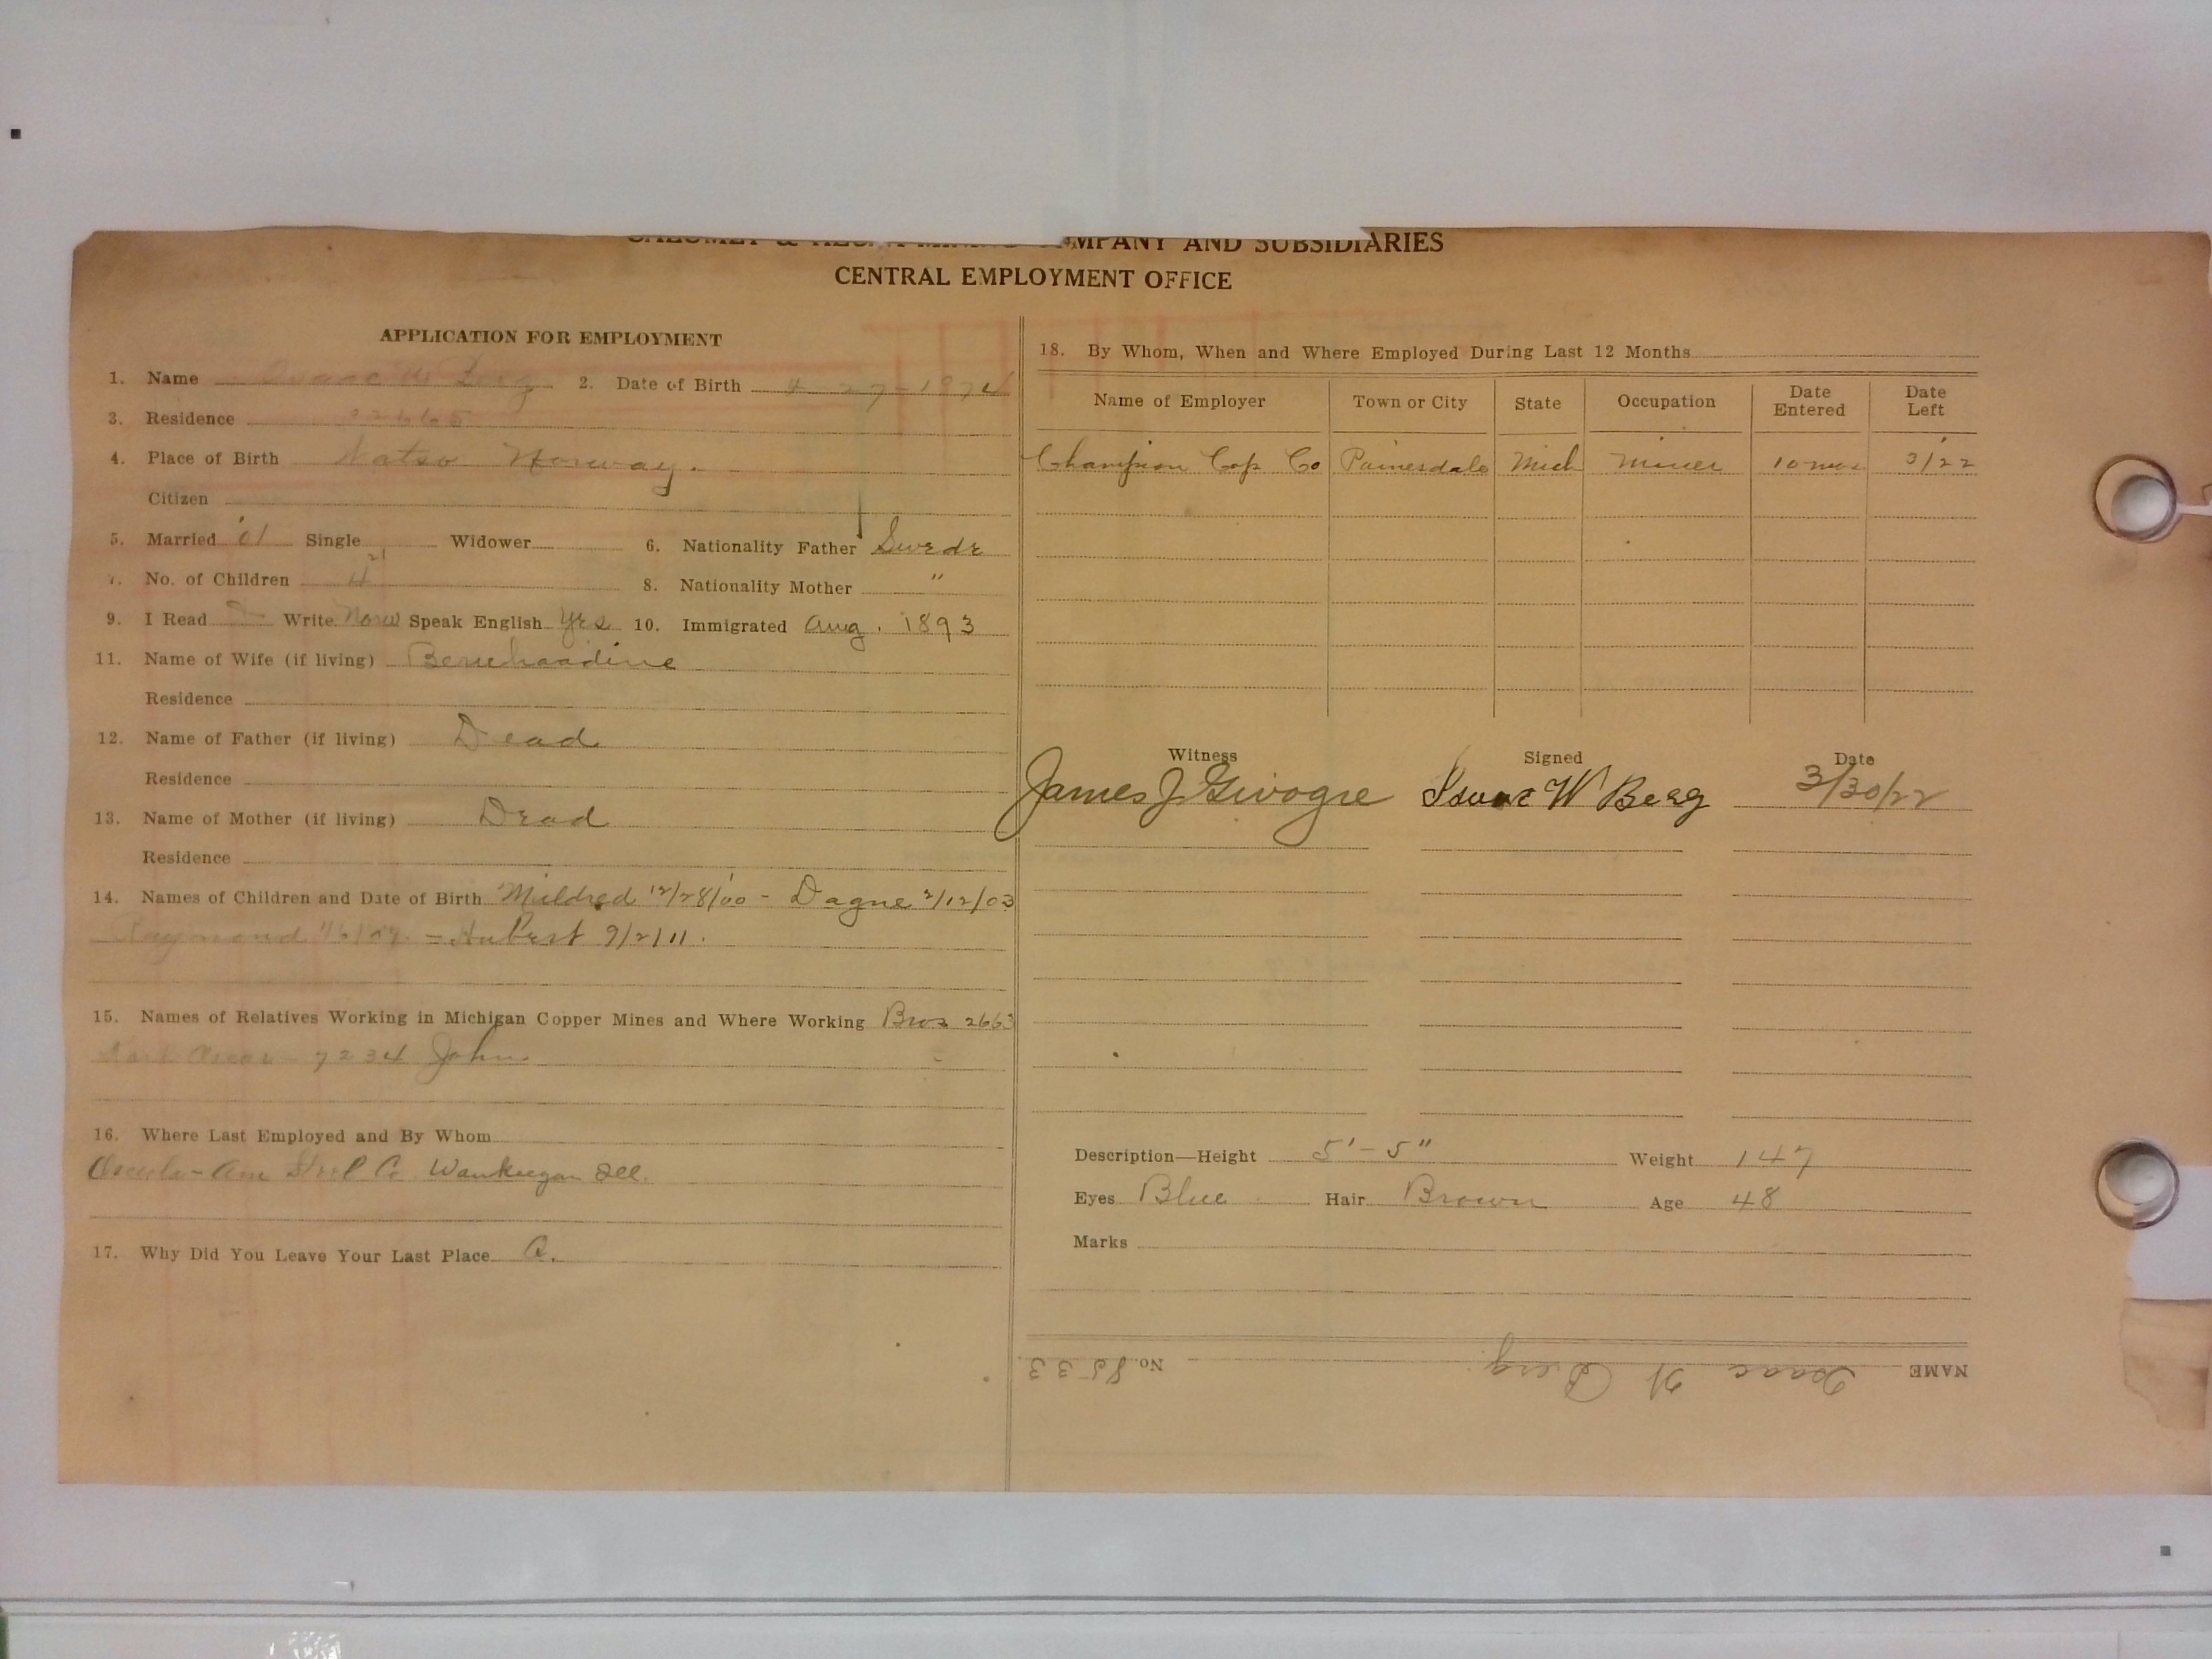 COMPANY AND SUBSIDIARIES
CENTRAL EMPLOYMENT OFFICE
APPLICATION FOR EMPLOYMENT
1. Name Isaac W Berg 2. Date of Birth 4-27-1874
3. Residence
4. Place of Birth Norway.
Citizen
5. Married '01 Single Widower 6. Nationality Father Swede
7. No. of Children 4 21 8. Nationality Mother "
9. I Read Write Norw Speak English Yes 10. Immigrated Aug. 1893
11. Name of Wife (if living)
Residence
12. Name of Father (if living) Dead
Residence
13. Name of Mother (if living) Dead
Residence
14. Names of Children and Date of Birth Mildred 12/28/00 - Dagne 2/12/03
Raymond - Hubert 9/2/11.
15. Names of Relatives Working in Michigan Copper Mines and Where Working Bros 2663
Karl Oscar - 7234 John
16. Where Last Employed and By Whom
Osceola - Am Steel Co. Waukeegan Ill.
17. Why Did You Leave Your Last Place
18. By Whom, When and Where Employed During Last 12 Months
Name of Employer Town or City State Occupation Date Entered Date Left
Champion Cop Co Painesdale Mich Miner 10 mos 3/22
Witness Signed Date
James J Isaac W Berg 3/30/22
Description—Height 5'-5" Weight 147
Eyes Blue Hair Brown Age 48
Marks
NAME Isaac W Berg No. 8533